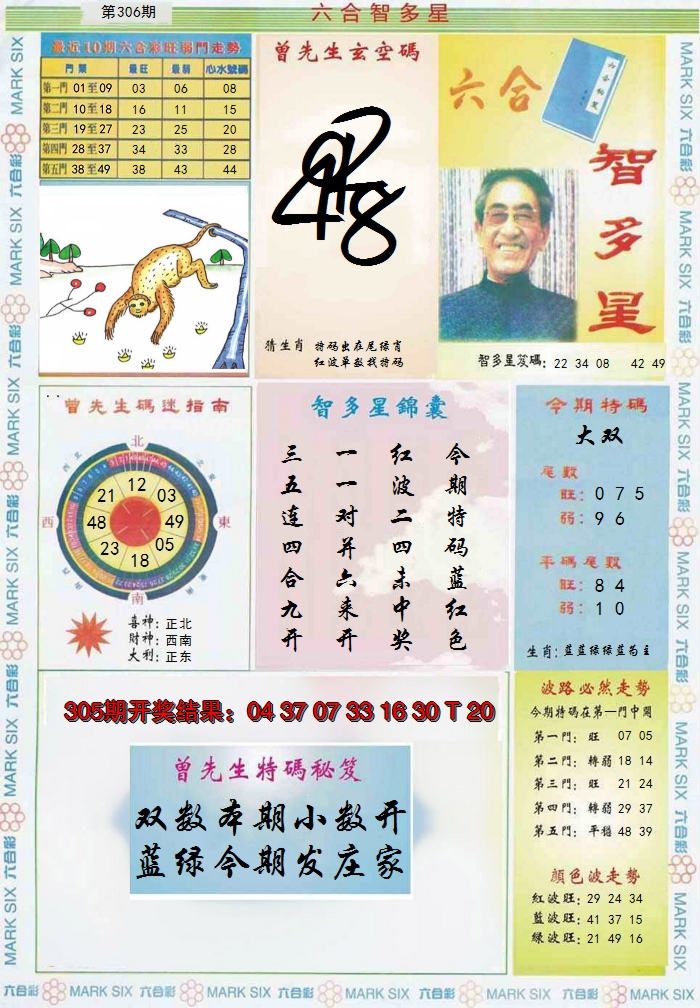 第306期
六合智多星
最近10期六合彩旺弱門走勢
門類 最旺 最弱 心水號碼
第一門 01至09 03 06 08
第二門 10至18 16 11 15
第三門 19至27 23 25 20
第四門 28至37 34 33 28
第五門 38至49 38 43 44
曾先生玄空碼
猜生肖 特码出在尾绿肖
红波单数找特码
六合
智多星
智多星笈碼: 22 34 08 42 49
曾先生碼迷指南
北
東
南
西
12
03
49
05
18
23
48
21
喜神: 正北
财神: 西南
大利: 正东
智多星錦囊
今期特码蓝红色
红波二四未中奖
一一对并六来开
三五连四合九开
今期特碼
大双
尾數
旺: 0 7 5
弱: 9 6
平碼尾數
旺: 8 4
弱: 1 0
生肖: 蓝蓝绿绿蓝为主
305期开奖结果: 04 37 07 33 16 30 T 20
曾先生特碼秘笈
双数本期小数开
蓝绿今期发庄家
波路必然走勢
今期特碼在第一門中開
第一門: 旺 07 05
第二門: 轉弱 18 14
第三門: 旺 21 24
第四門: 轉弱 29 37
第五門: 平穩 48 39
顏色波走勢
紅波旺: 29 24 34
藍波旺: 41 37 15
綠波旺: 21 49 16
六合彩 MARK SIX 六合彩 MARK SIX 六合彩 MARK SIX 六合彩 MARK SIX 六合彩